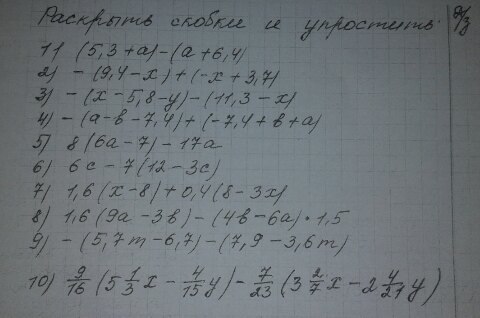 Раскрыть скобки и упростить: д/з
1) (5,3+а)-(а+6,4)
2) -(9,4-х)+(-х+3,7)
3) -(х-5,8-у)-(11,3-х)
4) -(а-в-7,4)+(-7,4+в+а)
5) 8(6а-7)-17а
6) 6с-7(12-3с)
7) 1,6(х-8)+0,4(8-3х)
8) 1,6(9а-3в)-(4в-6а)·1,5
9) -(5,7m-6,7)-(7,9-3,6m)
10) 9/16(5 1/3 х - 4/15 у) - 7/23(3 2/7 х - 2 4/21 у)